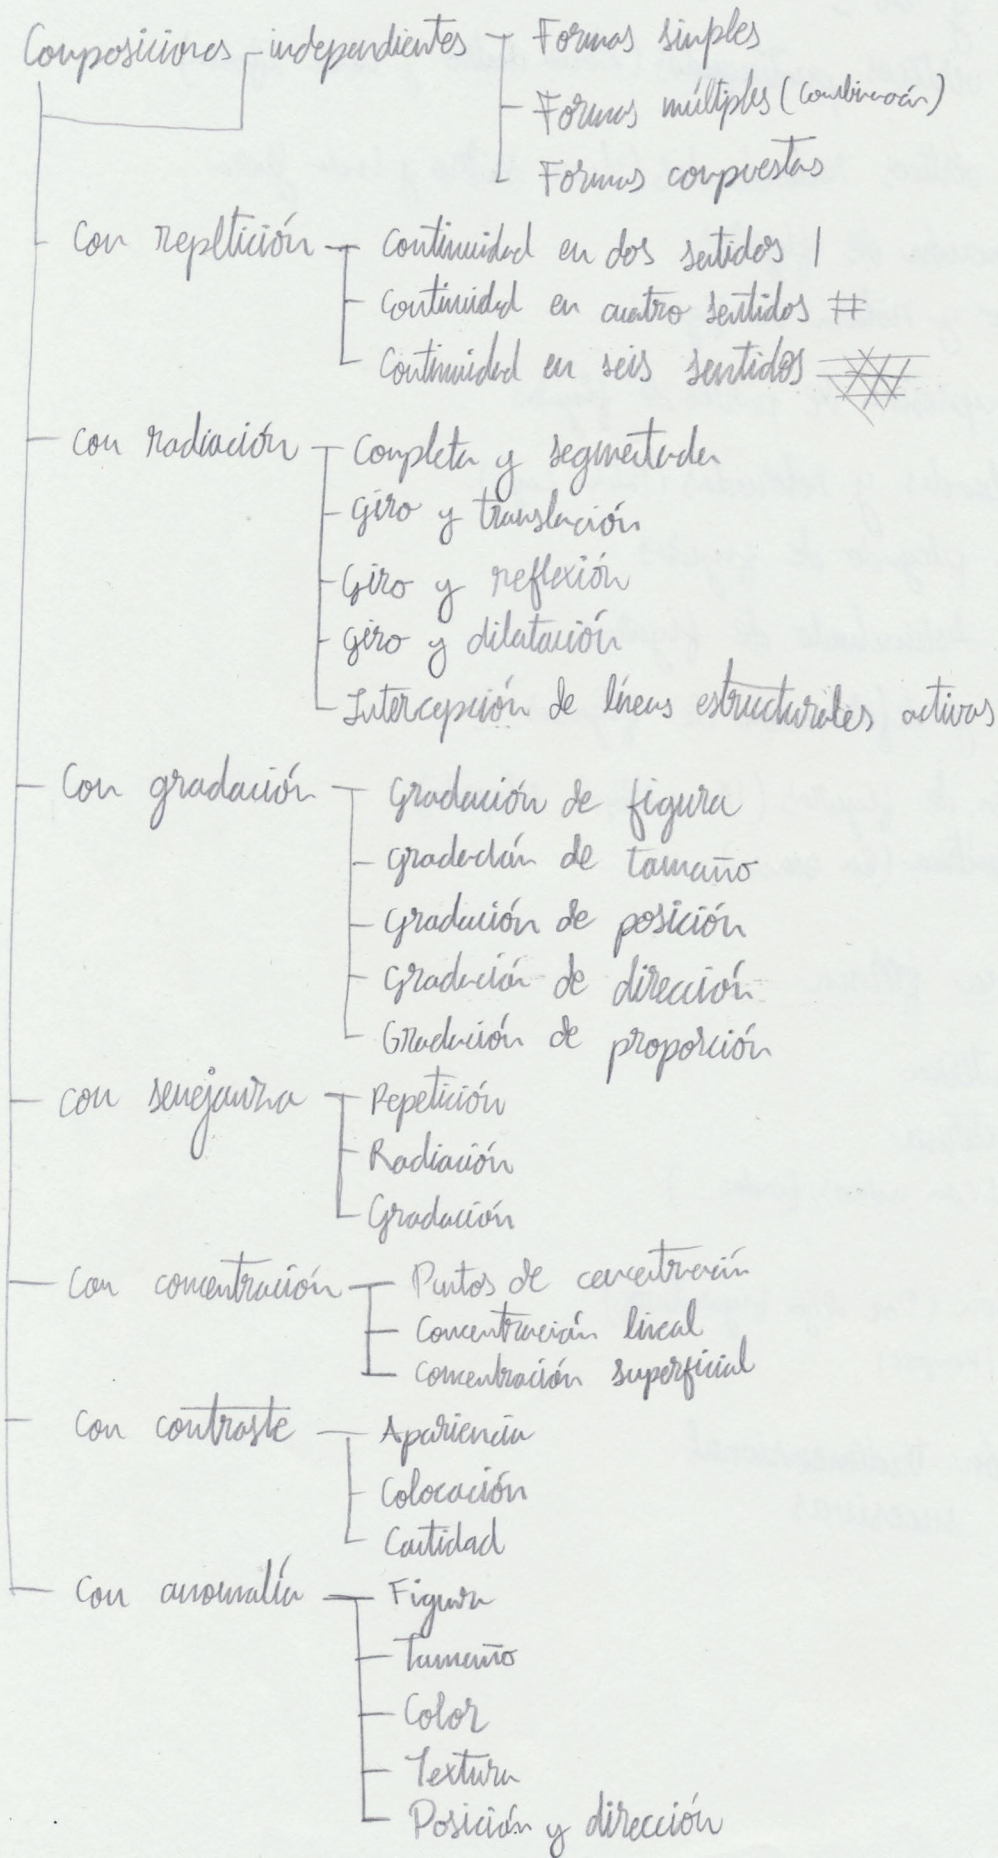 Composiciones independientes Formas simples
Formas múltiples (combinación)
Formas compuestas
Con repetición Continuidad en dos sentidos |
Continuidad en cuatro sentidos #
Continuidad en seis sentidos
Con radiación Completa y segmentada
Giro y translación
Giro y reflexión
Giro y dilatación
Intercepción de líneas estructurales activas
Con gradación Gradación de figura
Gradación de tamaño
Gradación de posición
Gradación de dirección
Gradación de proporción
Con semejanza Repetición
Radiación
Gradación
Con concentración Puntos de concentración
Concentración lineal
Concentración superficial
Con contraste Apariencia
Colocación
Cantidad
Con anomalía Figura
Tamaño
Color
Textura
Posición y dirección